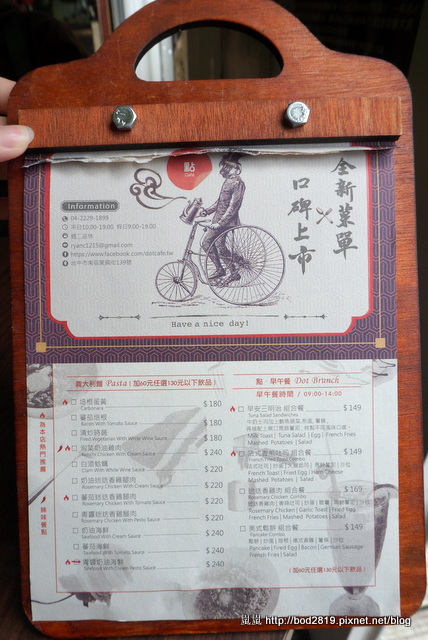 點
Cafe
全新菜單
口碑上市
Information
04-2229-1899
平日10:00-19:00 假日9:00-19:00
週二店休
ryanc1215@gmail.com
https://www.facebook.com/dotcafe.tw
Have a nice day!
義大利麵 Pasta (加60元任選130元以下飲品)
培根蛋黃 $180
Carbonara
蕃茄培根 $180
Bacon With Tomato Sauce
清炒時蔬 $180
Fried Vegetables With White Wine Sauce
泡菜奶油雞肉 $240
Kimchi Chicken With Cream Sauce
白酒蛤蠣 $220
Clam With White Wine Sauce
奶油迷迭香雞腿肉 $220
Rosemary Chicken With Cream Sauce
蕃茄迷迭香雞腿肉 $220
Rosemary Chicken With Tomato Sauce
青醬迷迭香雞腿肉 $220
Rosemary Chicken With Pesto Sauce
奶油海鮮 $240
Seafood With Cream Sauce
蕃茄海鮮 $240
Seafood With Tomato Sauce
青醬奶油海鮮 $240
Seafood With Cream Pesto Sauce
為本店熱門推薦
辣味餐點
點 · 早午餐 Dot Brunch
早午餐時間 / 09:00-14:00
早安三明治 組合餐 $149
Tuna Salad Sandwiches
Milk Toast | Tuna Salad | Egg | French Fries
Mashed Potatoes | Salad
法式香煎吐司 組合餐 $149
French Fried Toast Combo
French Toast | Fried Egg | French Fries
Mashed Potatoes | Salad
迷迭香雞肉 組合餐 $169
Rosemary Chicken Combo
Rosemary Chicken | Garlic Toast | Fried Egg
French Fries | Mashed Potatoes | Salad
美式鬆餅 組合餐 $149
Pancake Combo
Pancake | Fried Egg | Bacon | German Sausage
French Fries | Salad
(加60元任選130元以下飲品)
嵐嵐 http://bod2819.pixnet.net/blog